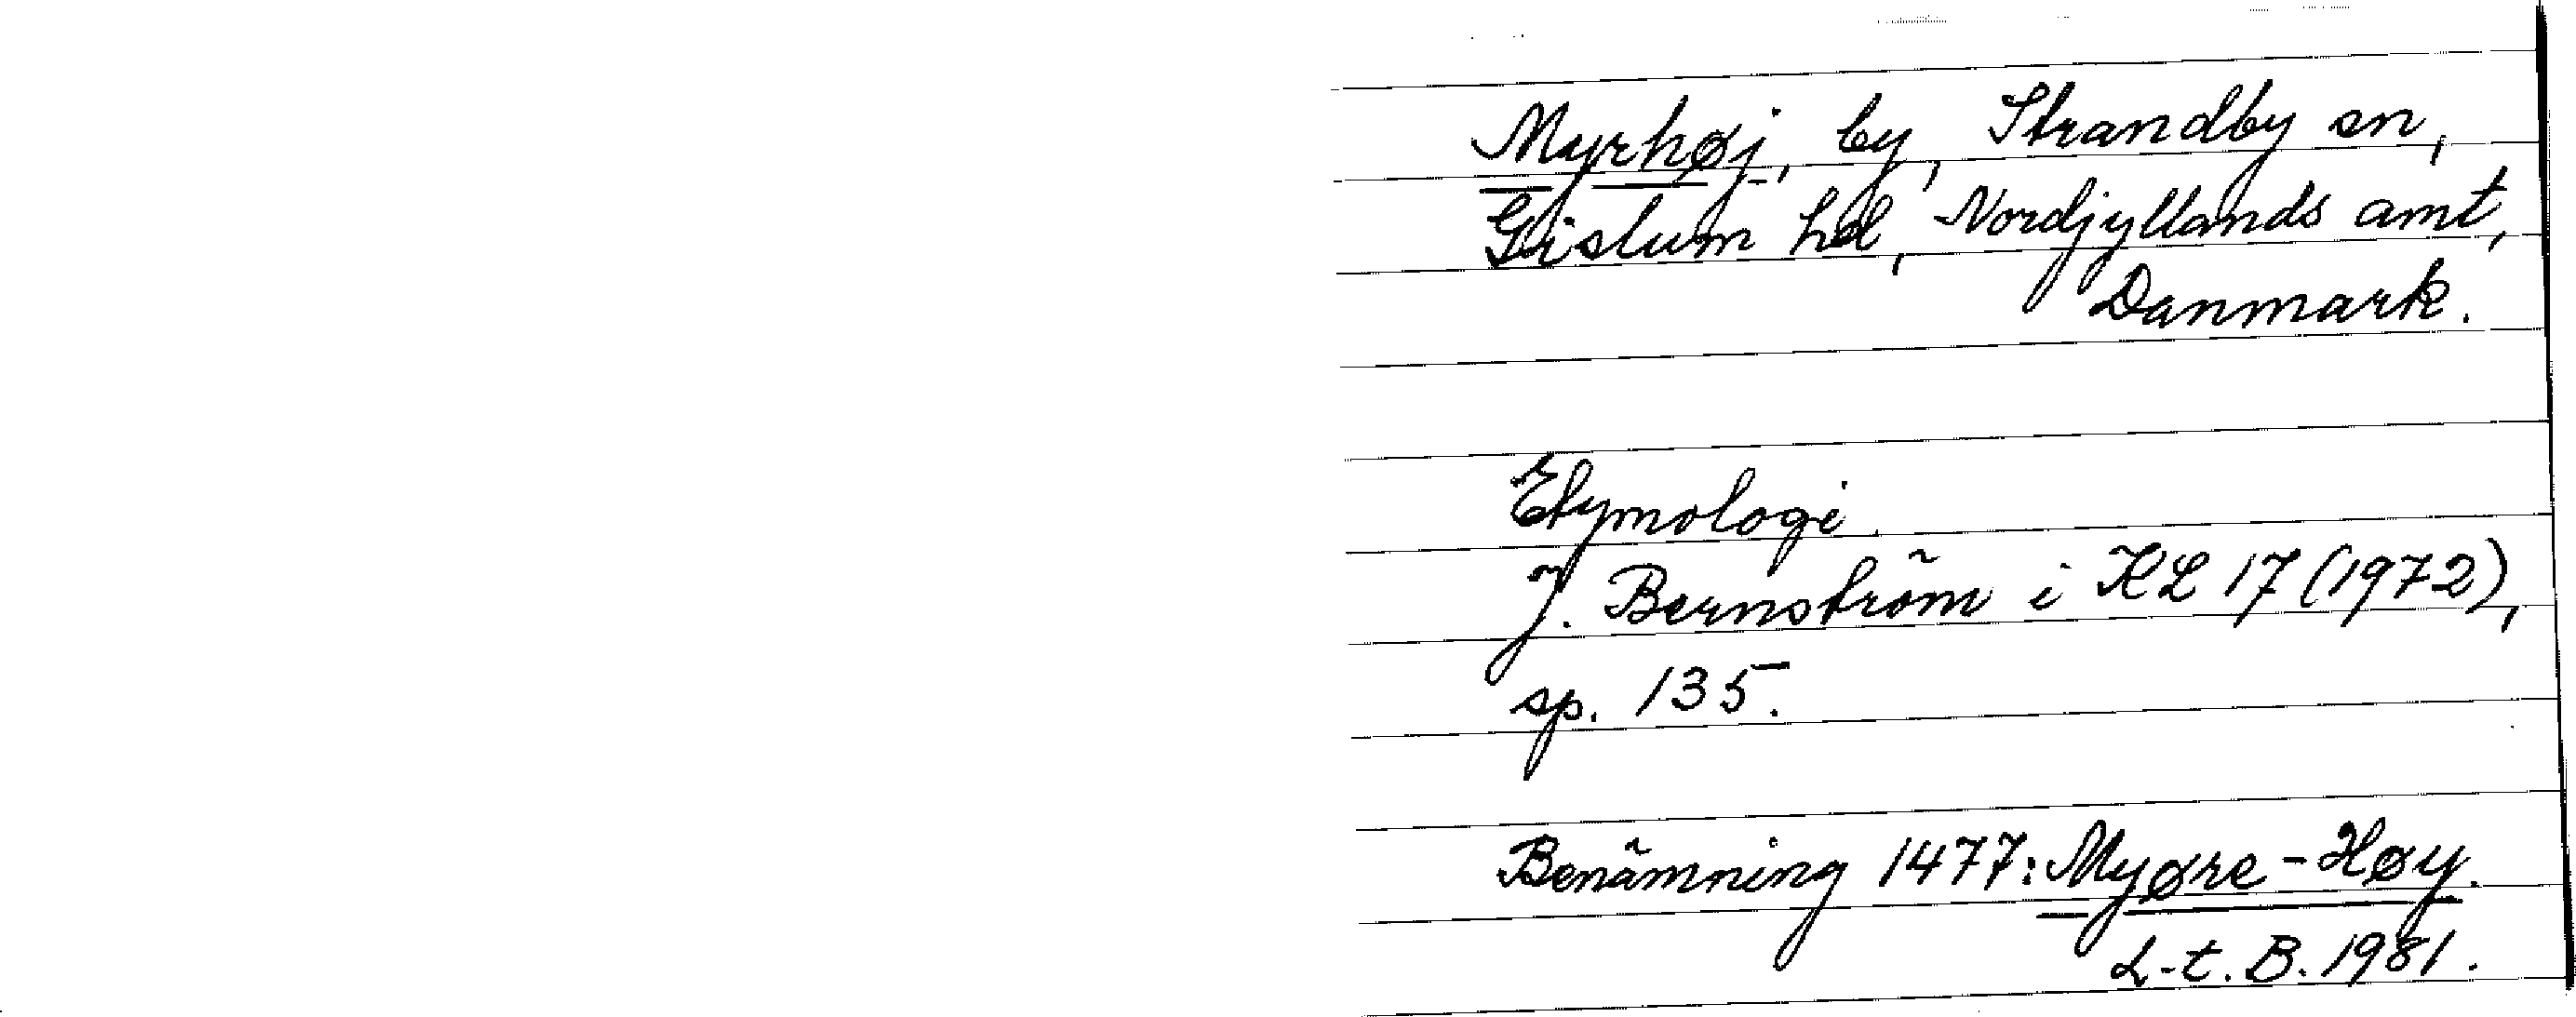 Myrhøj, by, Strandby sn,
Gislum hd, Nordjyllands amt,
Danmark.
Etymologi.
J. Bernström i KL 17 (1972),
sp. 135.
Benämning 1477: Myøre-Høy.
L-t. B. 1981.